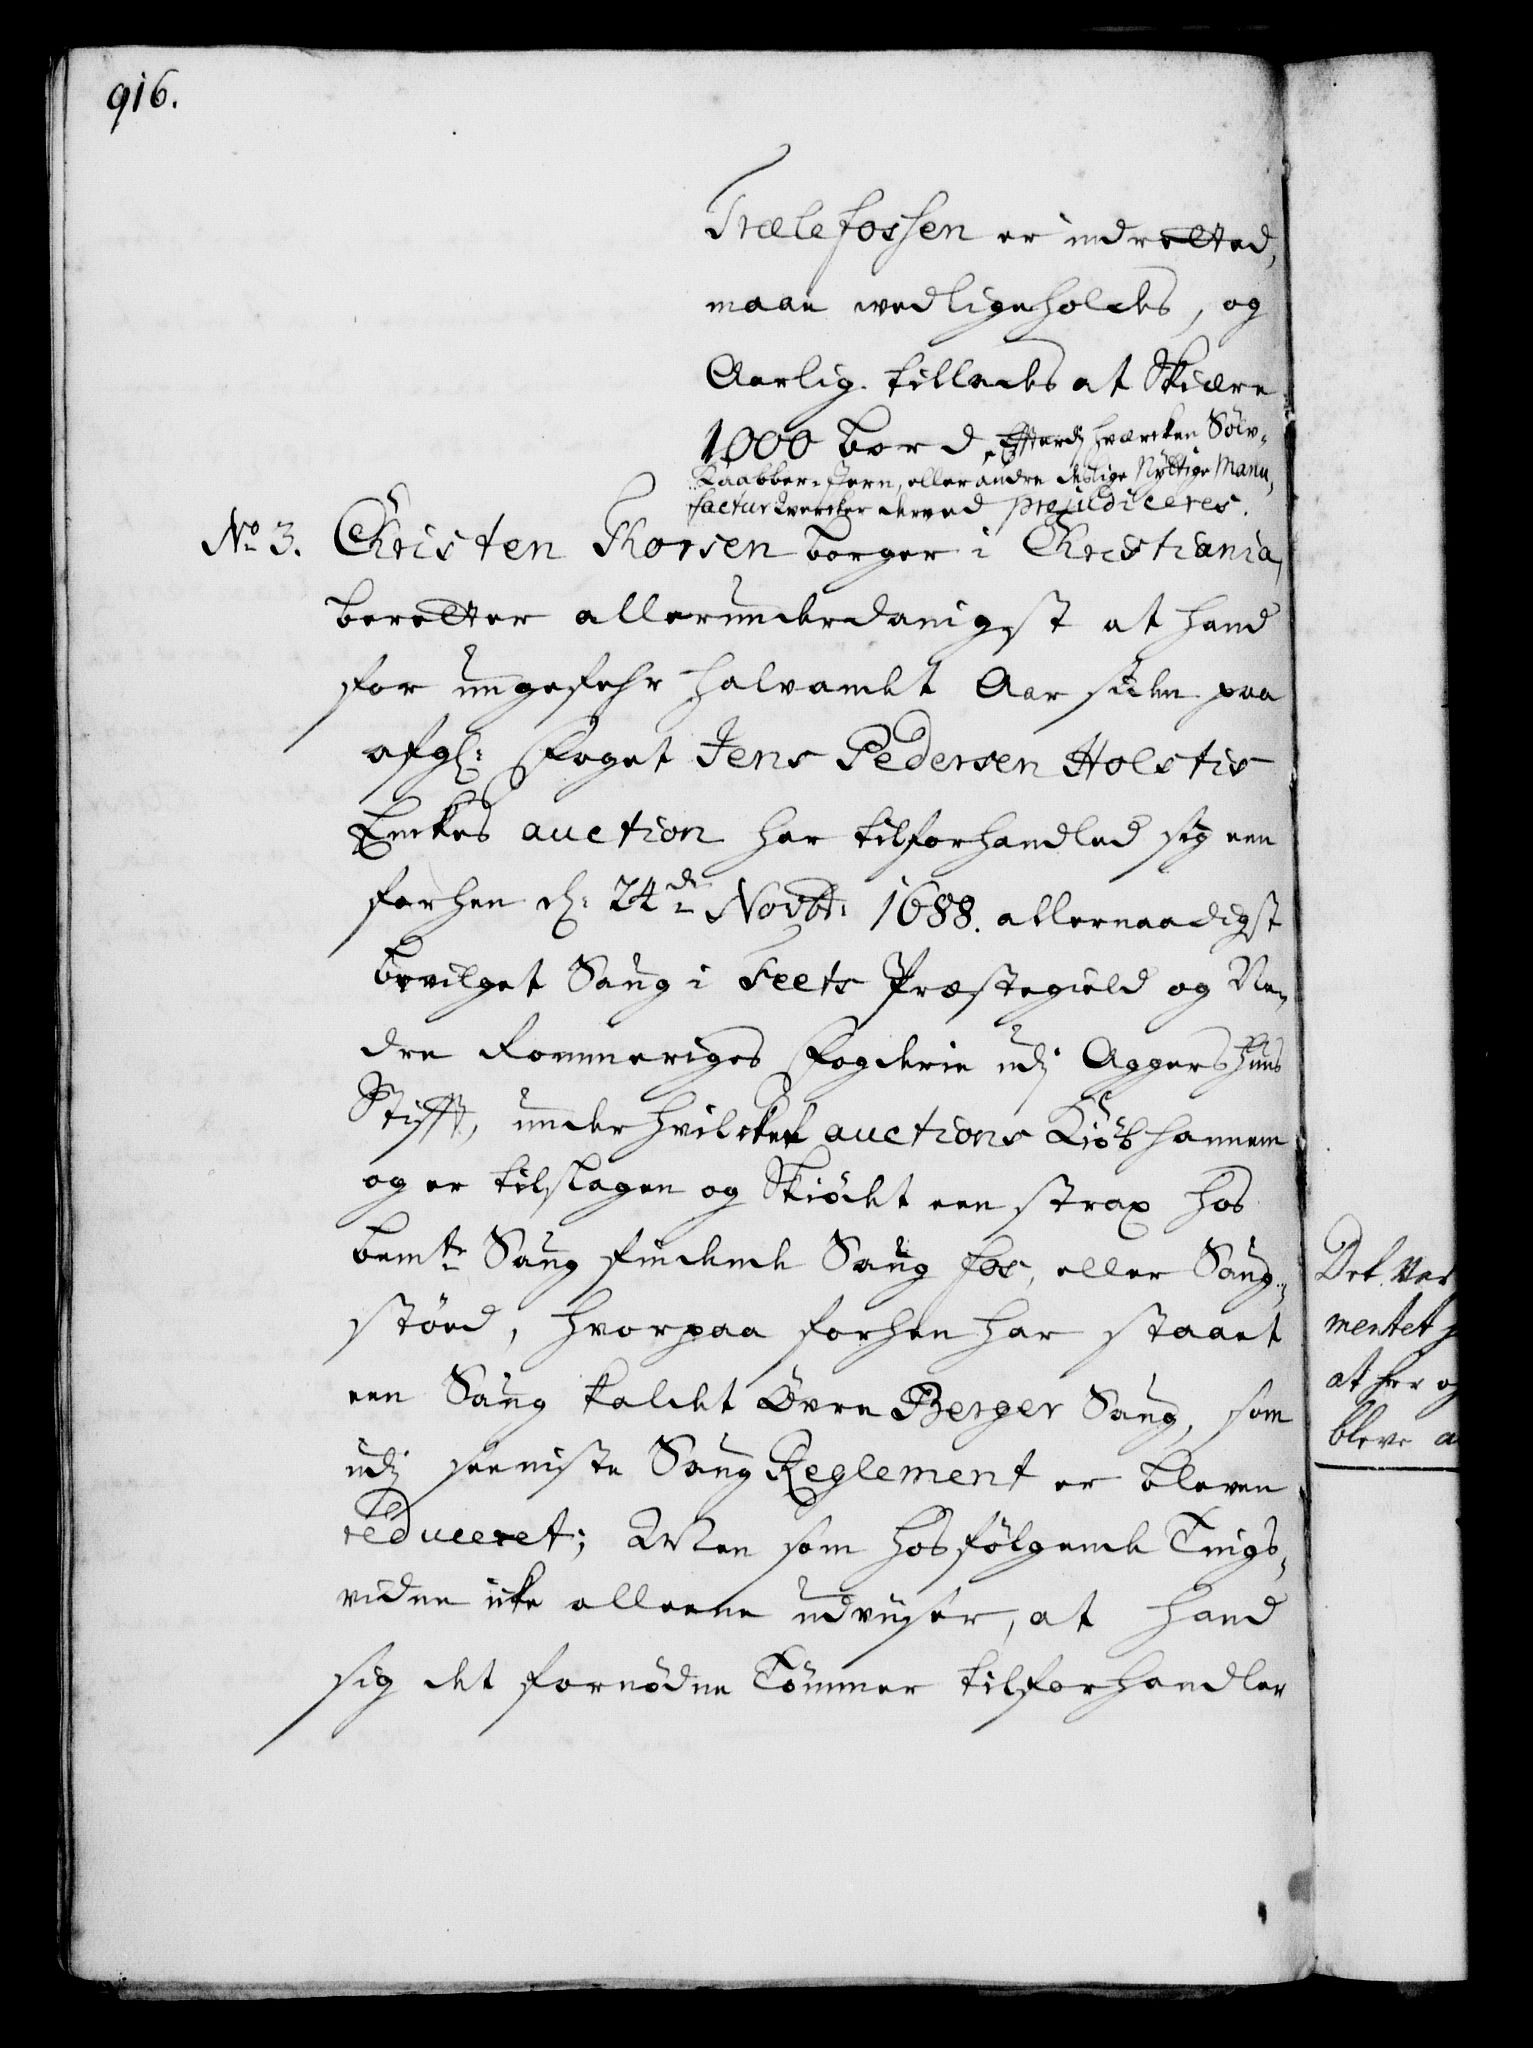 916.
Trælefossen er indretted,
maae wedligeholdes, og
Aarlig. tillades at Skiære
1000 bord, efterdj hwercken Sölv-
Kaabber- Jern, eller andre deslige Nyttige Manu-
factur Wercker derved prejudiceres.
No 3. Christen Thorsen borger i Christiania,
beretter allerunderdanigst at hand
for ungefehr halvandet Aar siden paa
afgl: Foget Jens Pedersen Holstis
Enkes auction har tilforhandled sig een
forhen d: 24de Novbr: 1688. allernaadigst
bevilget Saug i Feets Præstegield og Ne-
dre Rommeriges Fogderie udj Aggershuus
Stifft, under hvilcket auctions Kiöb hannem
og er tilslagen og Skiödet een strax hos
bemte Saug findende Saug fos, eller Saug-
stöed, hvorpaa forhen har staaet
een Saug kaldet Övre Berger Saug, som
udj seeniste Saug Reglement er bleven
reduceret; Men som hosfölgende Tings-
vidne icke alleene udviiser, at hand
sig det fornödne Tömmer tilforhandler
Det. Var
mentet
at her og
bleve a